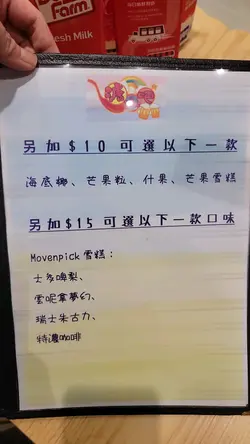 Farm
Fresh Milk
另加$10可選以下一款
海底椰、芒果粒、什果、芒果雪糕
另加$15可選以下一款口味
Movenpick雪糕：
士多啤梨、
雲呢拿夢幻、
瑞士朱古力、
特濃咖啡